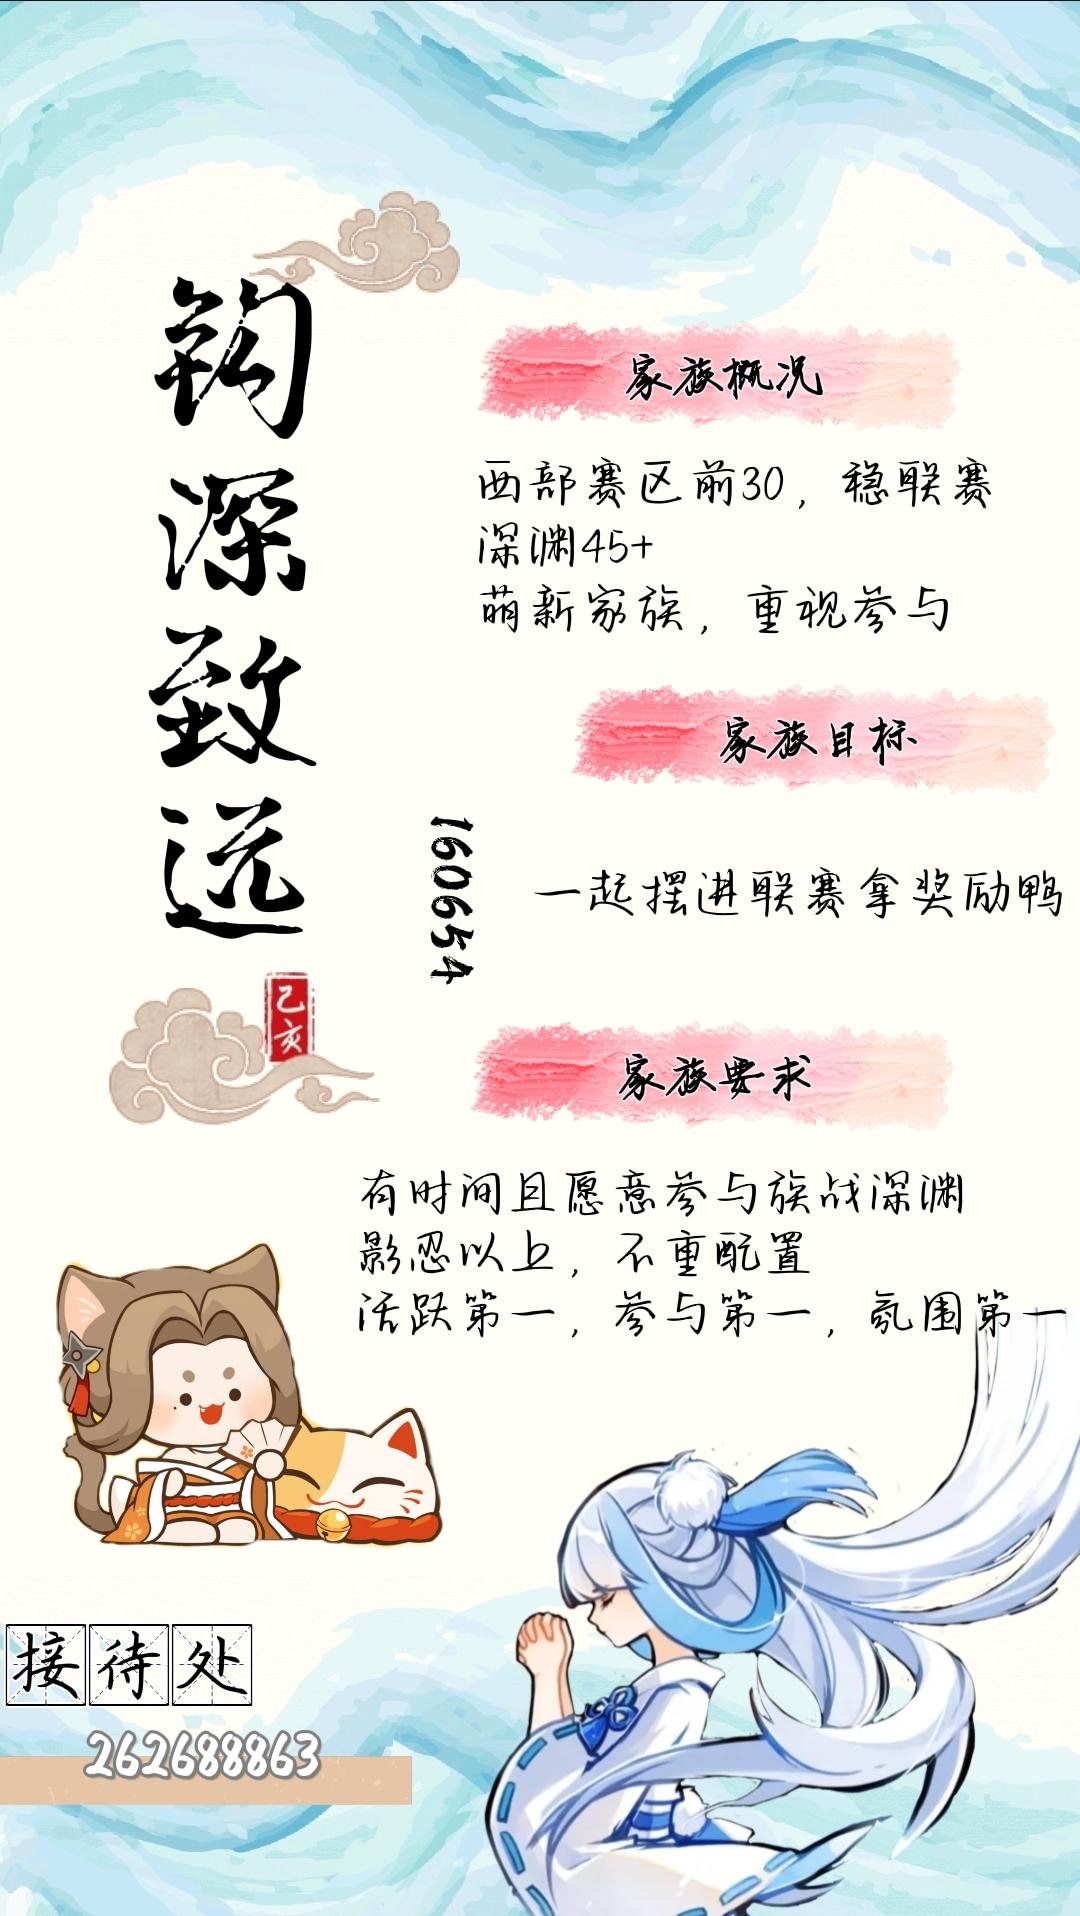 钩深致远
己亥
160654
家族概况
西部赛区前30，稳联赛
深渊45+
萌新家族，重视参与
家族目标
一起摆进联赛拿奖励鸭
家族要求
有时间且愿意参与族战深渊
影忍以上，不重配置
活跃第一，参与第一，氛围第一
接待处
262688863